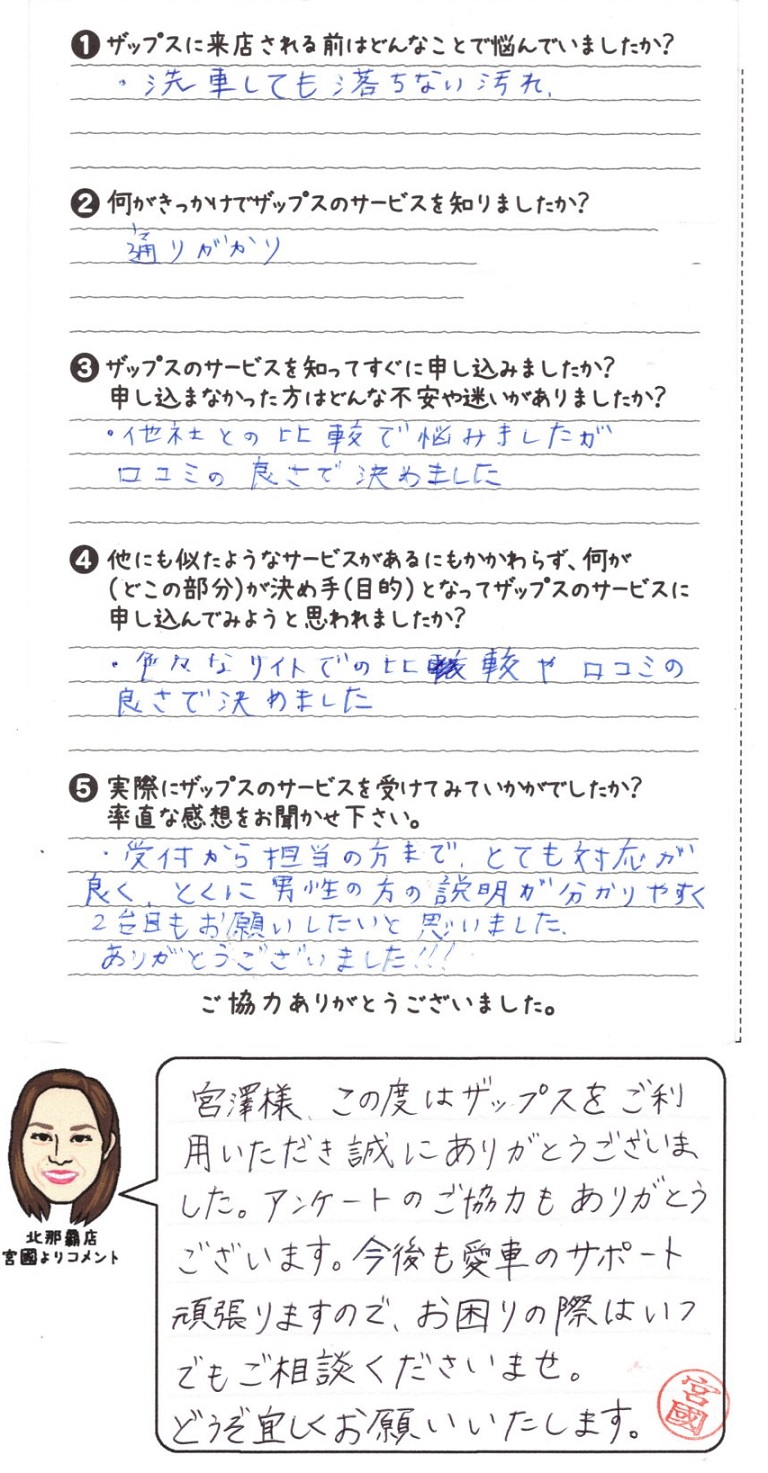 ❶ ザップスに来店される前はどんなことで悩んでいましたか?
・洗車しても落ちない汚れ、
❷ 何がきっかけでザップスのサービスを知りましたか?
通りがかり
❸ ザップスのサービスを知ってすぐに申し込みましたか?
申し込まなかった方はどんな不安や迷いがありましたか?
・他社との比較で悩みましたが
口コミの良さで決めました
❹ 他にも似たようなサービスがあるにもかかわらず、何が
(どこの部分)が決め手(目的)となってザップスのサービスに
申し込んでみようと思われましたか?
・色々なサイトでの比較や口コミの
良さで決めました
❺ 実際にザップスのサービスを受けてみていかがでしたか?
率直な感想をお聞かせ下さい。
・受付から担当の方まで、とても対応が
良く、とくに男性の方の説明が分かりやすく
2台目もお願いしたいと思いました、
ありがとうございました!!!
ご協力ありがとうございました。
宮澤様、この度はザップスをご利
用いただき誠にありがとうございま
した。アンケートのご協力もありがとう
ございます。今後も愛車のサポート
頑張りますので、お困りの際はいつ
でもご相談くださいませ。
どうぞ宜しくお願いいたします。
宮國
北那覇店
宮國よりコメント